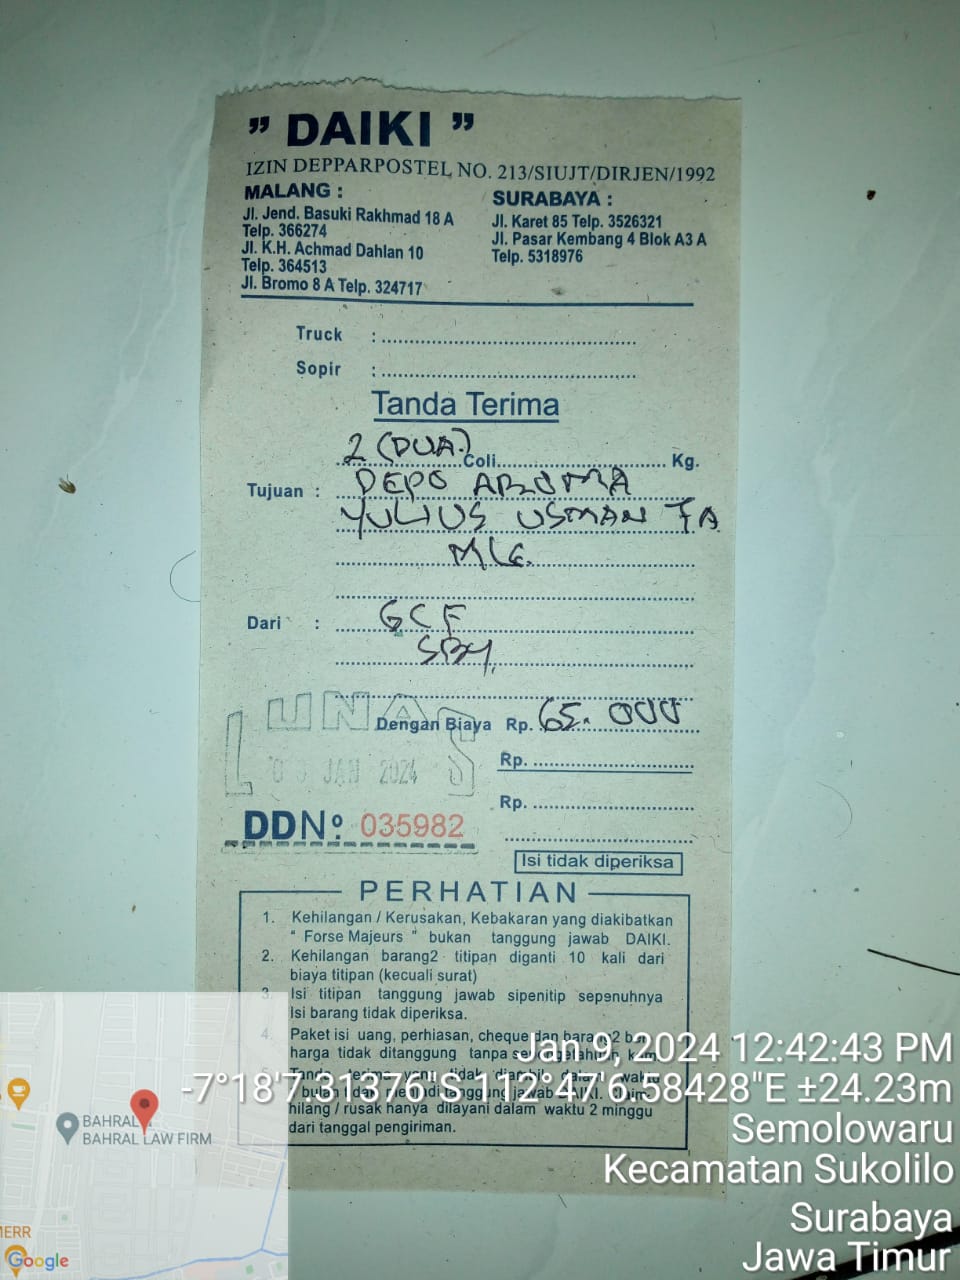 " DAIKI "
IZIN DEPPARPOSTEL NO. 213/SIUJT/DIRJEN/1992
MALANG :
Jl. Jend. Basuki Rakhmad 18 A
Telp. 366274
Jl. K.H. Achmad Dahlan 10
Telp. 364513
Jl. Bromo 8 A Telp. 324717
SURABAYA :
Jl. Karet 85 Telp. 3526321
Jl. Pasar Kembang 4 Blok A3 A
Telp. 5318976
Truck :
Sopir :
Tanda Terima
2 (DUA) Coli Kg.
Tujuan : DEPO AROMA
YULIUS USMAN 7A
MLG.
Dari : GCF
SBY.
Dengan Biaya Rp. 65.000
LUNAS
JAN 2024
Rp.
Rp.
DDNº: 035982
Isi tidak diperiksa
PERHATIAN
1. Kehilangan / Kerusakan, Kebakaran yang diakibatkan
" Forse Majeurs " bukan tanggung jawab DAIKI.
2. Kehilangan barang2 titipan diganti 10 kali dari
biaya titipan (kecuali surat)
3. Isi titipan tanggung jawab sipenitip sepenuhnya
Isi barang tidak diperiksa.
4. Paket isi uang, perhiasan, cheque dan barang2
harga tidak ditanggung tanpa
5. Tanda terima yang tidak diambil dalam waktu
tanggung jawab DAIKI.
hilang / rusak hanya dilayani dalam waktu 2 minggu
dari tanggal pengiriman.
Jan 9, 2024 12:42:43 PM
-7°18'7.31376"S 112°47'6.58428"E ±24.23m
Semolowaru
Kecamatan Sukolilo
Surabaya
Jawa Timur
BAHRAL
BAHRAL LAW FIRM
MERR
Google